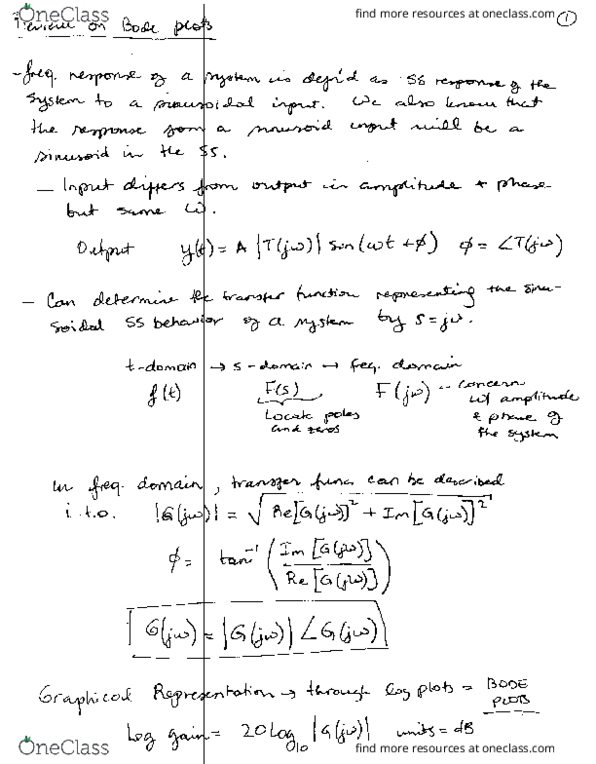 OneClass
find more resources at oneclass.com
1
Review on Bode plots
- freq. response of a system is def'd as SS response of the
system to a sinusoidal input. We also know that
the response from a sinusoid input will be a
sinusoid in the SS.
- Input differs from output in amplitude + phase
but same ω.
Output y(t) = A |T(jω)| sin(ωt + ϕ) ϕ = ∠T(jω)
- Can determine the transfer function representing the sinu-
soidal SS behavior of a system by s=jω.
t-domain → s-domain → freq. domain
f(t) F(s) F(jω) -- concern
w/ amplitude
Locate poles & phase of
and zeros the system
in freq. domain, transfer func can be described
i.t.o. |G(jω)| = √Re[G(jω)]² + Im[G(jω)]²
ϕ = tan⁻¹ (Im [G(jω)] / Re [G(jω)])
G(jω) = |G(jω)| ∠G(jω)
Graphical Representation → through log plots = BODE
PLOTS
Log gain = 20 log₁₀ |G(jω)| units = dB
OneClass
find more resources at oneclass.com